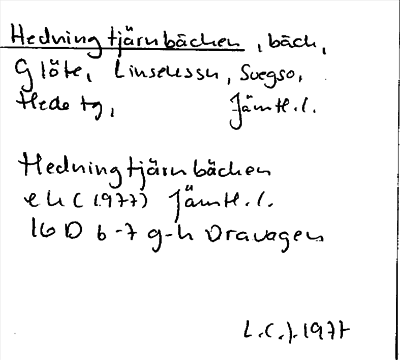 Hedningtjärnbäcken, bäck,
Glöte, Linsellssn, Svegso,
Hede tg, Jämtl.l.
Hedningtjärnbäcken
ek (1977) Jämtl.l.
16 D 6-7 g-h Dravagen
L.C.J. 1977